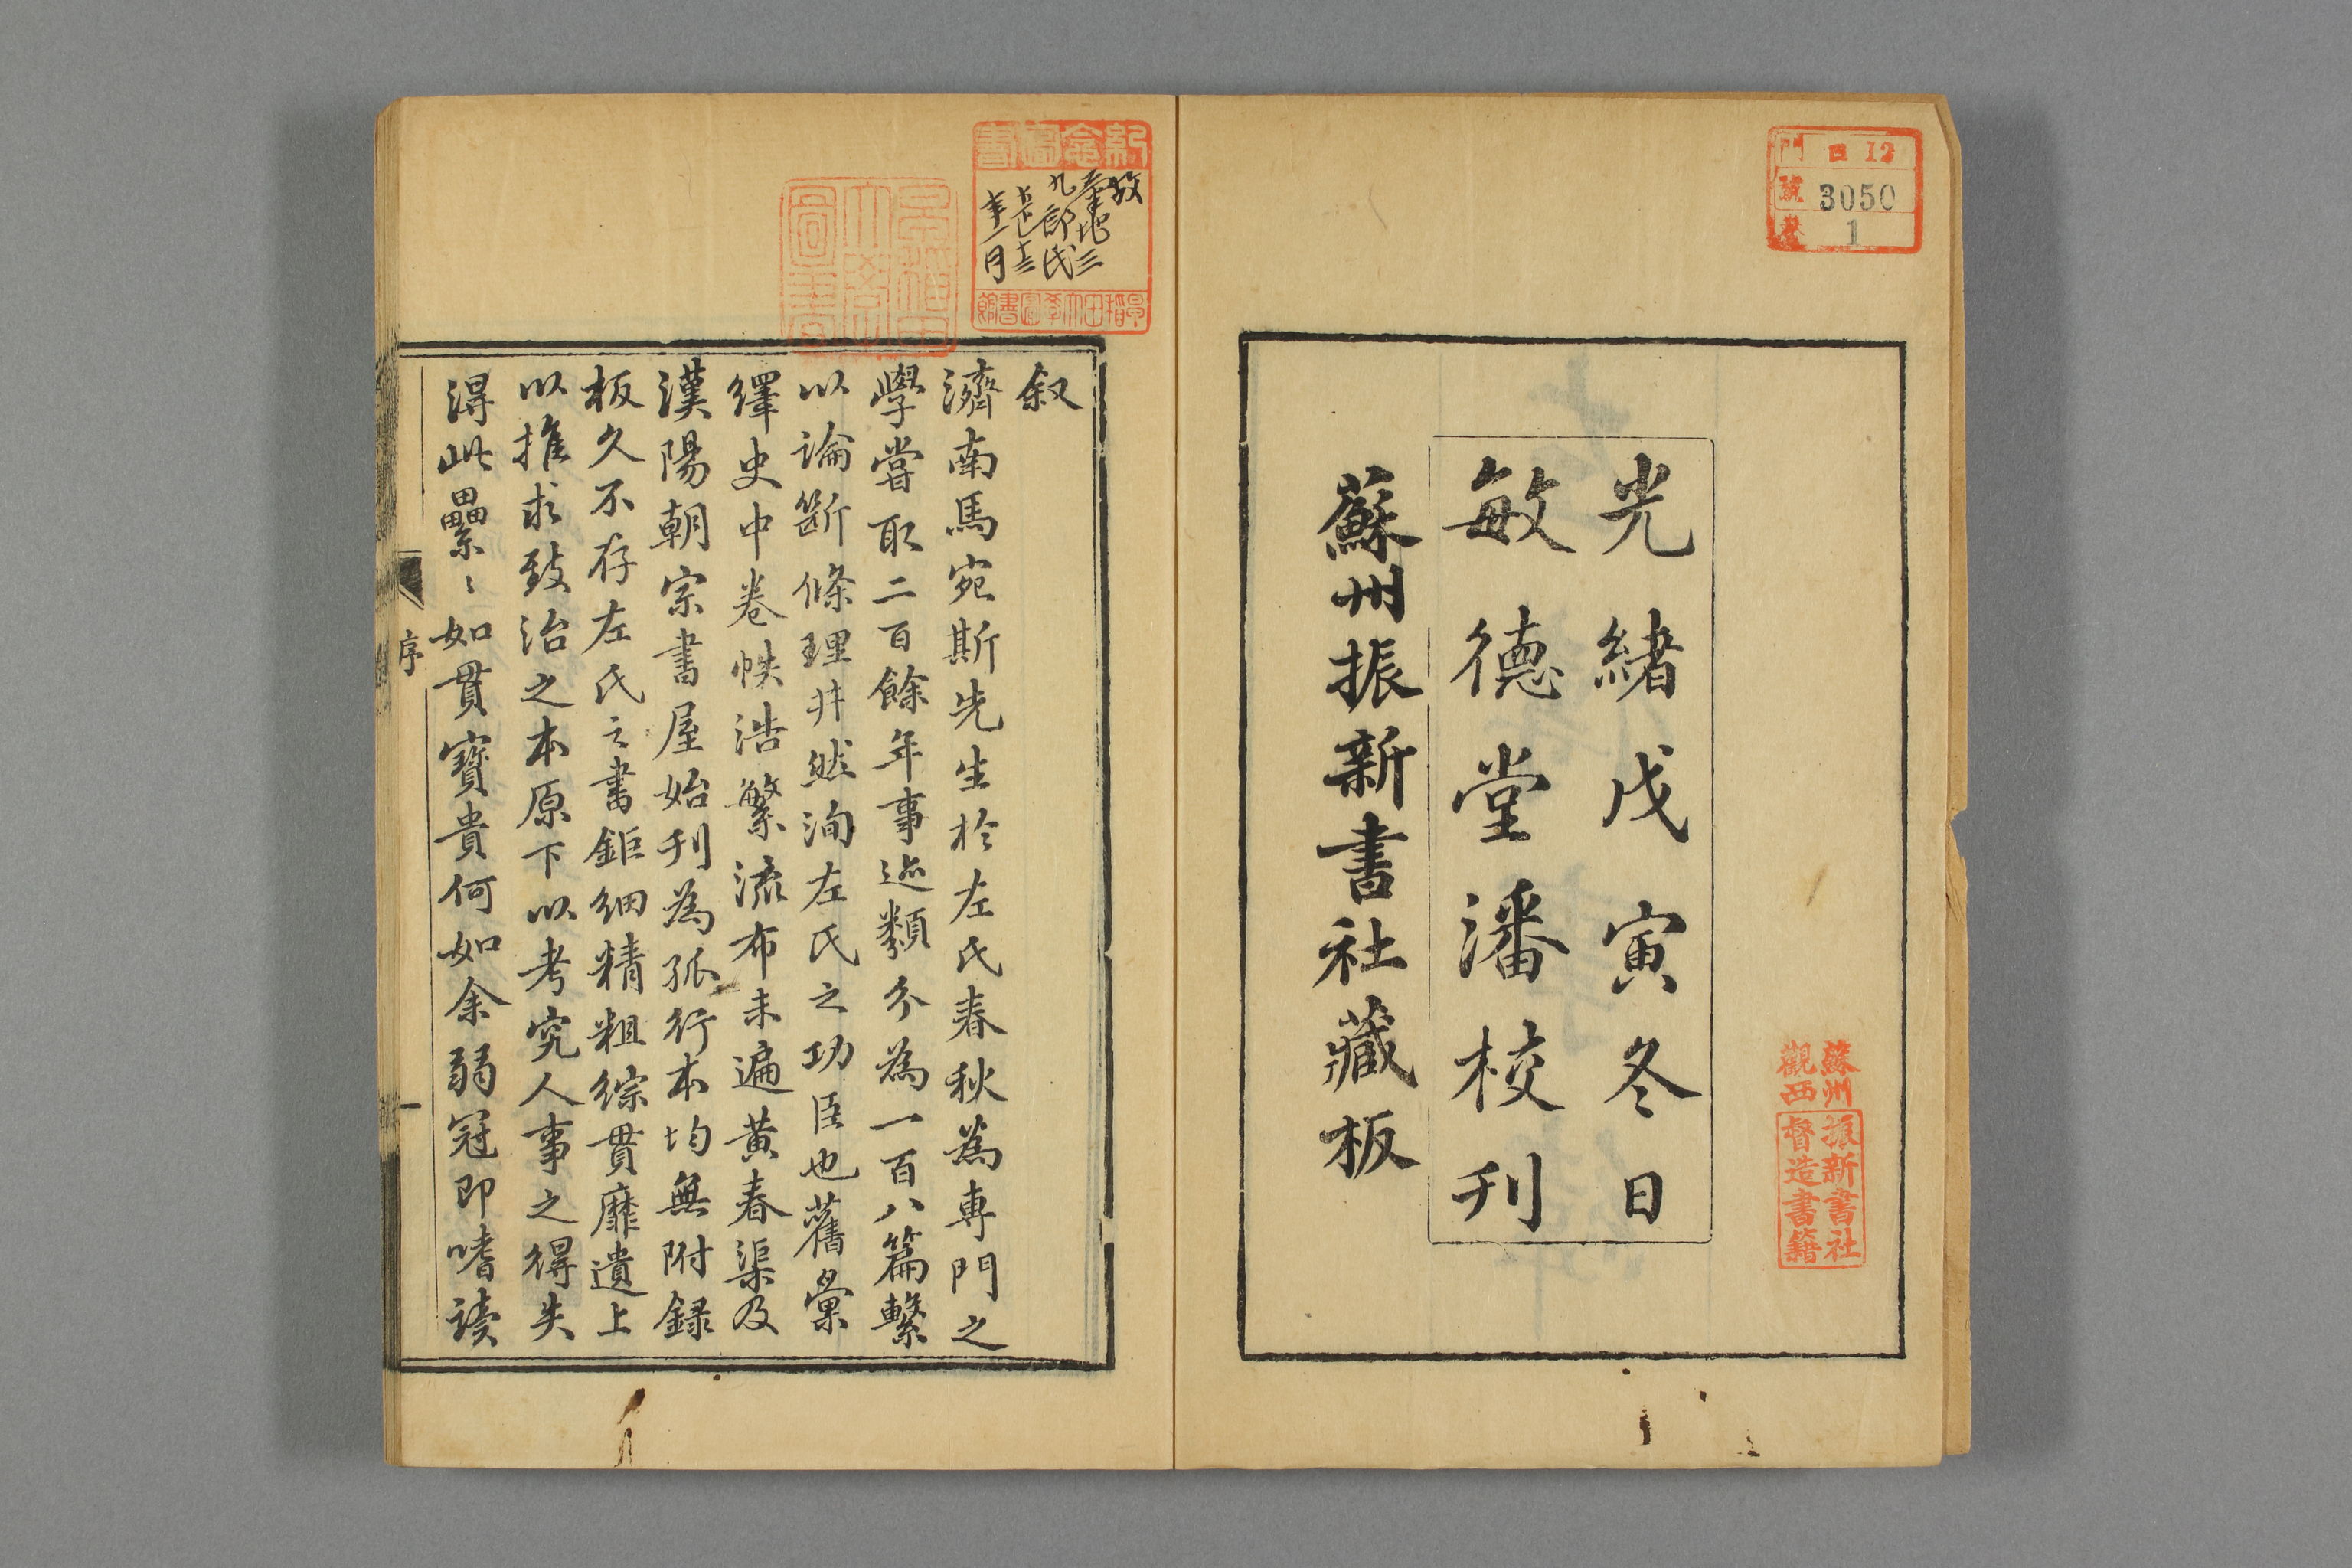 門 ロ 12
號 3050
卷 1
光緒戊寅冬日
敏德堂潘校刊
蘇州振新書社藏板
蘇州
觀西
振新書社
督造書籍
紀念圖書
故
九郎氏
大正十三
年一月
早稻田大學圖書館
早稻田
大學
圖書
叙
濟南馬宛斯先生於左氏春秋為專門之
學嘗取二百餘年事迹類分為一百八篇繫
以論斷條理井然洵左氏之功臣也舊彙
繹史中卷帙浩繁流布未遍黄春渠及
漢陽朝宗書屋始刊為孤行本均無附録
板久不存左氏之書鉅細精粗綜貫靡遺上
以推求致治之本原下以考究人事之得失
淂此纍〻如貫寶貴何如余弱冠即嗜读
序
一